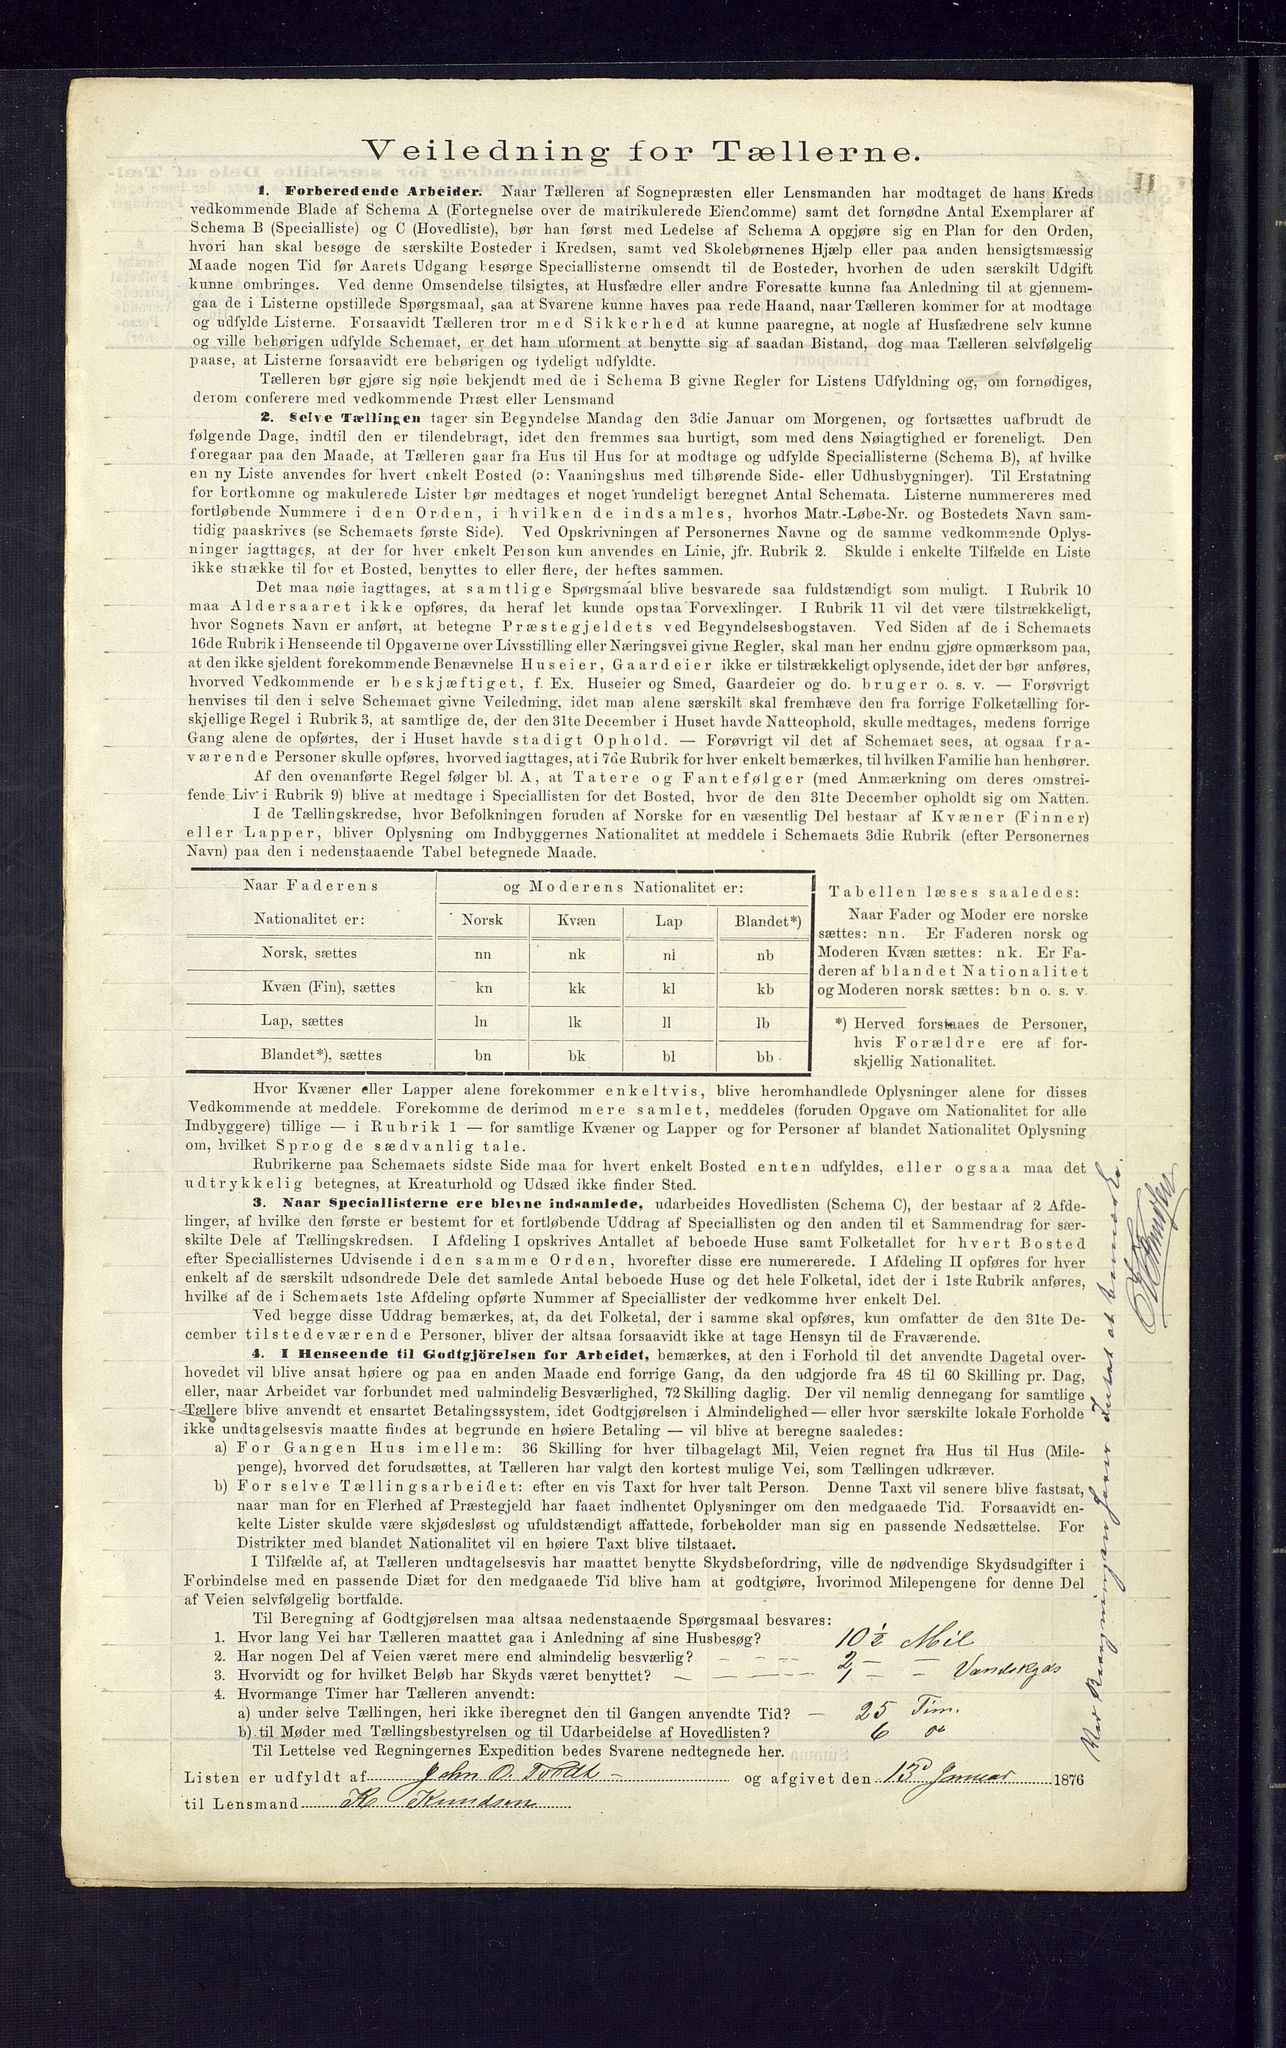 11
Veiledning for Tællerne.
1. Forberedende Arbeider. Naar Tælleren af Sognepræsten eller Lensmanden har modtaget de hans Kreds
vedkommende Blade af Schema A (Fortegnelse over de matrikulerede Eiendomme) samt det fornødne Antal Exemplarer af
Schema B (Specialliste) og C (Hovedliste), bør han først med Ledelse af Schema A opgjøre sig en Plan for den Orden,
hvori han skal besøge de særskilte Bosteder i Kredsen, samt ved Skolebørnenes Hjælp eller paa anden hensigtsmæssig
Maade nogen Tid før Aarets Udgang besørge Speciallisterne omsendt til de Bosteder, hvorhen de uden særskilt Udgift
kunne ombringes. Ved denne Omsendelse tilsigtes, at Husfædre eller andre Foresatte kunne faa Anledning til at gjennem-
gaa de i Listerne opstillede Spørgsmaal, saa at Svarene kunne haves paa rede Haand, naar Tælleren kommer for at modtage
og udfylde Listerne. Forsaavidt Tælleren tror med Sikkerhed at kunne paaregne, at nogle af Husfædrene selv kunne
og ville behørigen udfylde Schemaet, er det ham uforment at benytte sig af saadan Bistand, dog maa Tælleren selvfølgelig
paase, at Listerne forsaavidt ere behørigen og tydeligt udfyldte.
Tælleren bør gjøre sig nøie bekjendt med de i Schema B givne Regler for Listens Udfyldning og, om fornødiges,
derom conferere med vedkommende Præst eller Lensmand
2. Selve Tællingen tager sin Begyndelse Mandag den 3die Januar om Morgenen, og fortsættes uafbrudt de
følgende Dage, indtil den er tilendebragt, idet den fremmes saa hurtigt, som med dens Nøiagtighed er foreneligt. Den
foregaar paa den Maade, at Tælleren gaar fra Hus til Hus for at modtage og udfylde Speciallisterne (Schema B), af hvilke
en ny Liste anvendes for hvert enkelt Bosted (ɔ: Vaaningshus med tilhørende Side- eller Udhusbygninger). Til Erstatning
for bortkomne og makulerede Lister bør medtages et noget rundeligt beregnet Antal Schemata. Listerne nummereres med
fortløbende Nummere i den Orden, i hvilken de indsamles, hvorhos Matr.-Løbe-Nr. og Bostedets Navn sam-
tidig paaskrives (se Schemaets første Side). Ved Opskrivningen af Personernes Navne og de samme vedkommende Oplys-
ninger iagttages, at der for hver enkelt Person kun anvendes en Linie, jfr. Rubrik 2. Skulde i enkelte Tilfælde en Liste
ikke strække til for et Bosted, benyttes to eller flere, der heftes sammen.
Det maa nøie iagttages, at samtlige Spørgsmaal blive besvarede saa fuldstændigt som muligt. I Rubrik 10
maa Aldersaaret ikke opføres, da heraf let kunde opstaa Forvexlinger. I Rubrik 11 vil det være tilstrækkeligt,
hvor Sognets Navn er anført, at betegne Præstegjeldets ved Begyndelsesbogstaven. Ved Siden af de i Schemaets
16de Rubrik i Henseende til Opgaverne over Livsstilling eller Næringsvei givne Regler, skal man her endnu gjøre opmærksom paa,
at den ikke sjeldent forekommende Benævnelse Huseier, Gaardeier ikke er tilstrækkeligt oplysende, idet der bør anføres,
hvorved Vedkommende er beskjæftiget, f. Ex. Huseier og Smed, Gaardeier og do. bruger o. s. v. — Forøvrigt
henvises til den i selve Schemaet givne Veiledning, idet man alene særskilt skal fremhæve den fra forrige Folketælling for-
skjellige Regel i Rubrik 3, at samtlige de, der den 31te December i Huset havde Natteophold, skulle medtages, medens forrige
Gang alene de opførtes, der i Huset havde stadigt Ophold. — Forøvrigt vil det af Schemaet sees, at ogsaa fra-
værende Personer skulle opføres, hvorved iagttages, at i 7de Rubrik for hver enkelt bemærkes, til hvilken Familie han henhører.
Af den ovenanførte Regel følger bl. A, at Tatere og Fantefølger (med Anmærkning om deres omstrei-
fende Liv i Rubrik 9) blive at medtage i Speciallisten for det Bosted, hvor de den 31te December opholdt sig om Natten.
I de Tællingskredse, hvor Befolkningen foruden af Norske for en væsentlig Del bestaar af Kvæner (Finner)
eller Lapper, bliver Oplysning om Indbyggernes Nationalitet at meddele i Schemaets 3die Rubrik (efter Personernes
Navn) paa den i nedenstaaende Tabel betegnede Maade.
Naar Faderens og Moderens Nationalitet er:
Nationalitet er: Norsk Kvæn Lap Blandet*)
Norsk, sættes nn nk nl nb
Kvæn (Fin), sættes kn kk kl kb
Lap, sættes ln lk ll lb
Blandet*), sættes bn bk bl bb
Tabellen læses saaledes:
Naar Fader og Moder ere norske
sættes: nn. Er Faderen norsk og
Moderen Kvæn sættes: nk. Er Fa-
deren af blandet Nationalitet
og Moderen norsk sættes: bn o. s. v.
*) Herved forstaaes de Personer,
hvis Forældre ere af for-
skjellig Nationalitet.
Hvor Kvæner eller Lapper alene forekommer enkeltvis, blive heromhandlede Oplysninger alene for disses
Vedkommende at meddele. Forekomme de derimod mere samlet, meddeles (foruden Opgave om Nationalitet for alle
Indbyggere) tillige — i Rubrik 1 — for samtlige Kvæner og Lapper og for Personer af blandet Nationalitet Oplysning
om, hvilket Sprog de sædvanlig tale.
Rubrikerne paa Schemaets sidste Side maa for hvert enkelt Bosted enten udfyldes, eller ogsaa maa det
udtrykkelig betegnes, at Kreaturhold og Udsæd ikke finder Sted.
3. Naar Speciallisterne ere blevne indsamlede, udarbeides Hovedlisten (Schema C), der bestaar af 2 Afde-
linger, af hvilke den første er bestemt for et fortløbende Uddrag af Speciallisten og den anden til et Sammendrag for sær-
skilte Dele af Tællingskredsen. I Afdeling I opskrives Antallet af beboede Huse samt Folketallet for hvert Bosted
efter Speciallisternes Udvisende i den samme Orden, hvorefter disse ere numererede. I Afdeling II opføres for hver
enkelt af de særskilt udsondrede Dele det samlede Antal beboede Huse og det hele Folketal, idet der i 1ste Rubrik anføres,
hvilke af de i Schemaets 1ste Afdeling opførte Nummer af Speciallister der vedkomme hver enkelt Del.
Ved begge disse Uddrag bemærkes, at, da det Folketal, der i samme skal opføres, kun omfatter de den 31te De-
cember tilstedeværende Personer, bliver der altsaa forsaavidt ikke at tage Hensyn til de Fraværende.
4. I Henseende til Godtgjörelsen for Arbeidet, bemærkes, at den i Forhold til det anvendte Dagetal over-
hovedet vil blive ansat høiere og paa en anden Maade end forrige Gang, da den udgjorde fra 48 til 60 Skilling pr. Dag,
eller, naar Arbeidet var forbundet med ualmindelig Besværlighed, 72 Skilling daglig. Der vil nemlig dennegang for samtlige
Tællere blive anvendt et ensartet Betalingssystem, idet Godtgjørelsen i Almindelighed — eller hvor særskilte lokale Forholde
ikke undtagelsesvis maatte findes at begrunde en høiere Betaling — vil blive at beregne saaledes:
a) For Gangen Hus imellem: 36 Skilling for hver tilbagelagt Mil, Veien regnet fra Hus til Hus (Mile-
penge), hvorved det forudsættes, at Tælleren har valgt den kortest mulige Vei, som Tællingen udkræver.
b) For selve Tællingsarbeidet: efter en vis Taxt for hver talt Person. Denne Taxt vil senere blive fastsat,
naar man for en Flerhed af Præstegjeld har faaet indhentet Oplysninger om den medgaaede Tid. Forsaavidt en-
kelte Lister skulde være skjødesløst og ufuldstændigt affattede, forbeholder man sig en passende Nedsættelse. For
Distrikter med blandet Nationalitet vil en høiere Taxt blive tilstaaet.
I Tilfælde af, at Tælleren undtagelsesvis har maattet benytte Skydsbefordring, ville de nødvendige Skydsudgifter i
Forbindelse med en passende Diæt for den medgaaede Tid blive ham at godtgjøre, hvorimod Milepengene for denne Del
af Veien selvfølgelig bortfalde.
Til Beregning af Godtgjørelsen maa altsaa nedenstaaende Spørgsmaal besvares:
1. Hvor lang Vei har Tælleren maattet gaa i Anledning af sine Husbesøg? 10 ½ Mil
2. Har nogen Del af Veien været mere end almindelig besværlig? 2 — —
3. Hvorvidt og for hvilket Beløb har Skyds været benyttet? — Vandskyds
4. Hvormange Timer har Tælleren anvendt:
a) under selve Tællingen, heri ikke iberegnet den til Gangen anvendte Tid? — 25 Tim.
b) til Møder med Tællingsbestyrelsen og til Udarbeidelse af Hovedlisten? 6
Til Lettelse ved Regningernes Expedition bedes Svarene nedtegnede her.
Listen er udfyldt af John O. Tvedt og afgivet den 13 Januar 1876
til Lensmand K Knudsen
Ved intet at bemærke.
K Knudsen